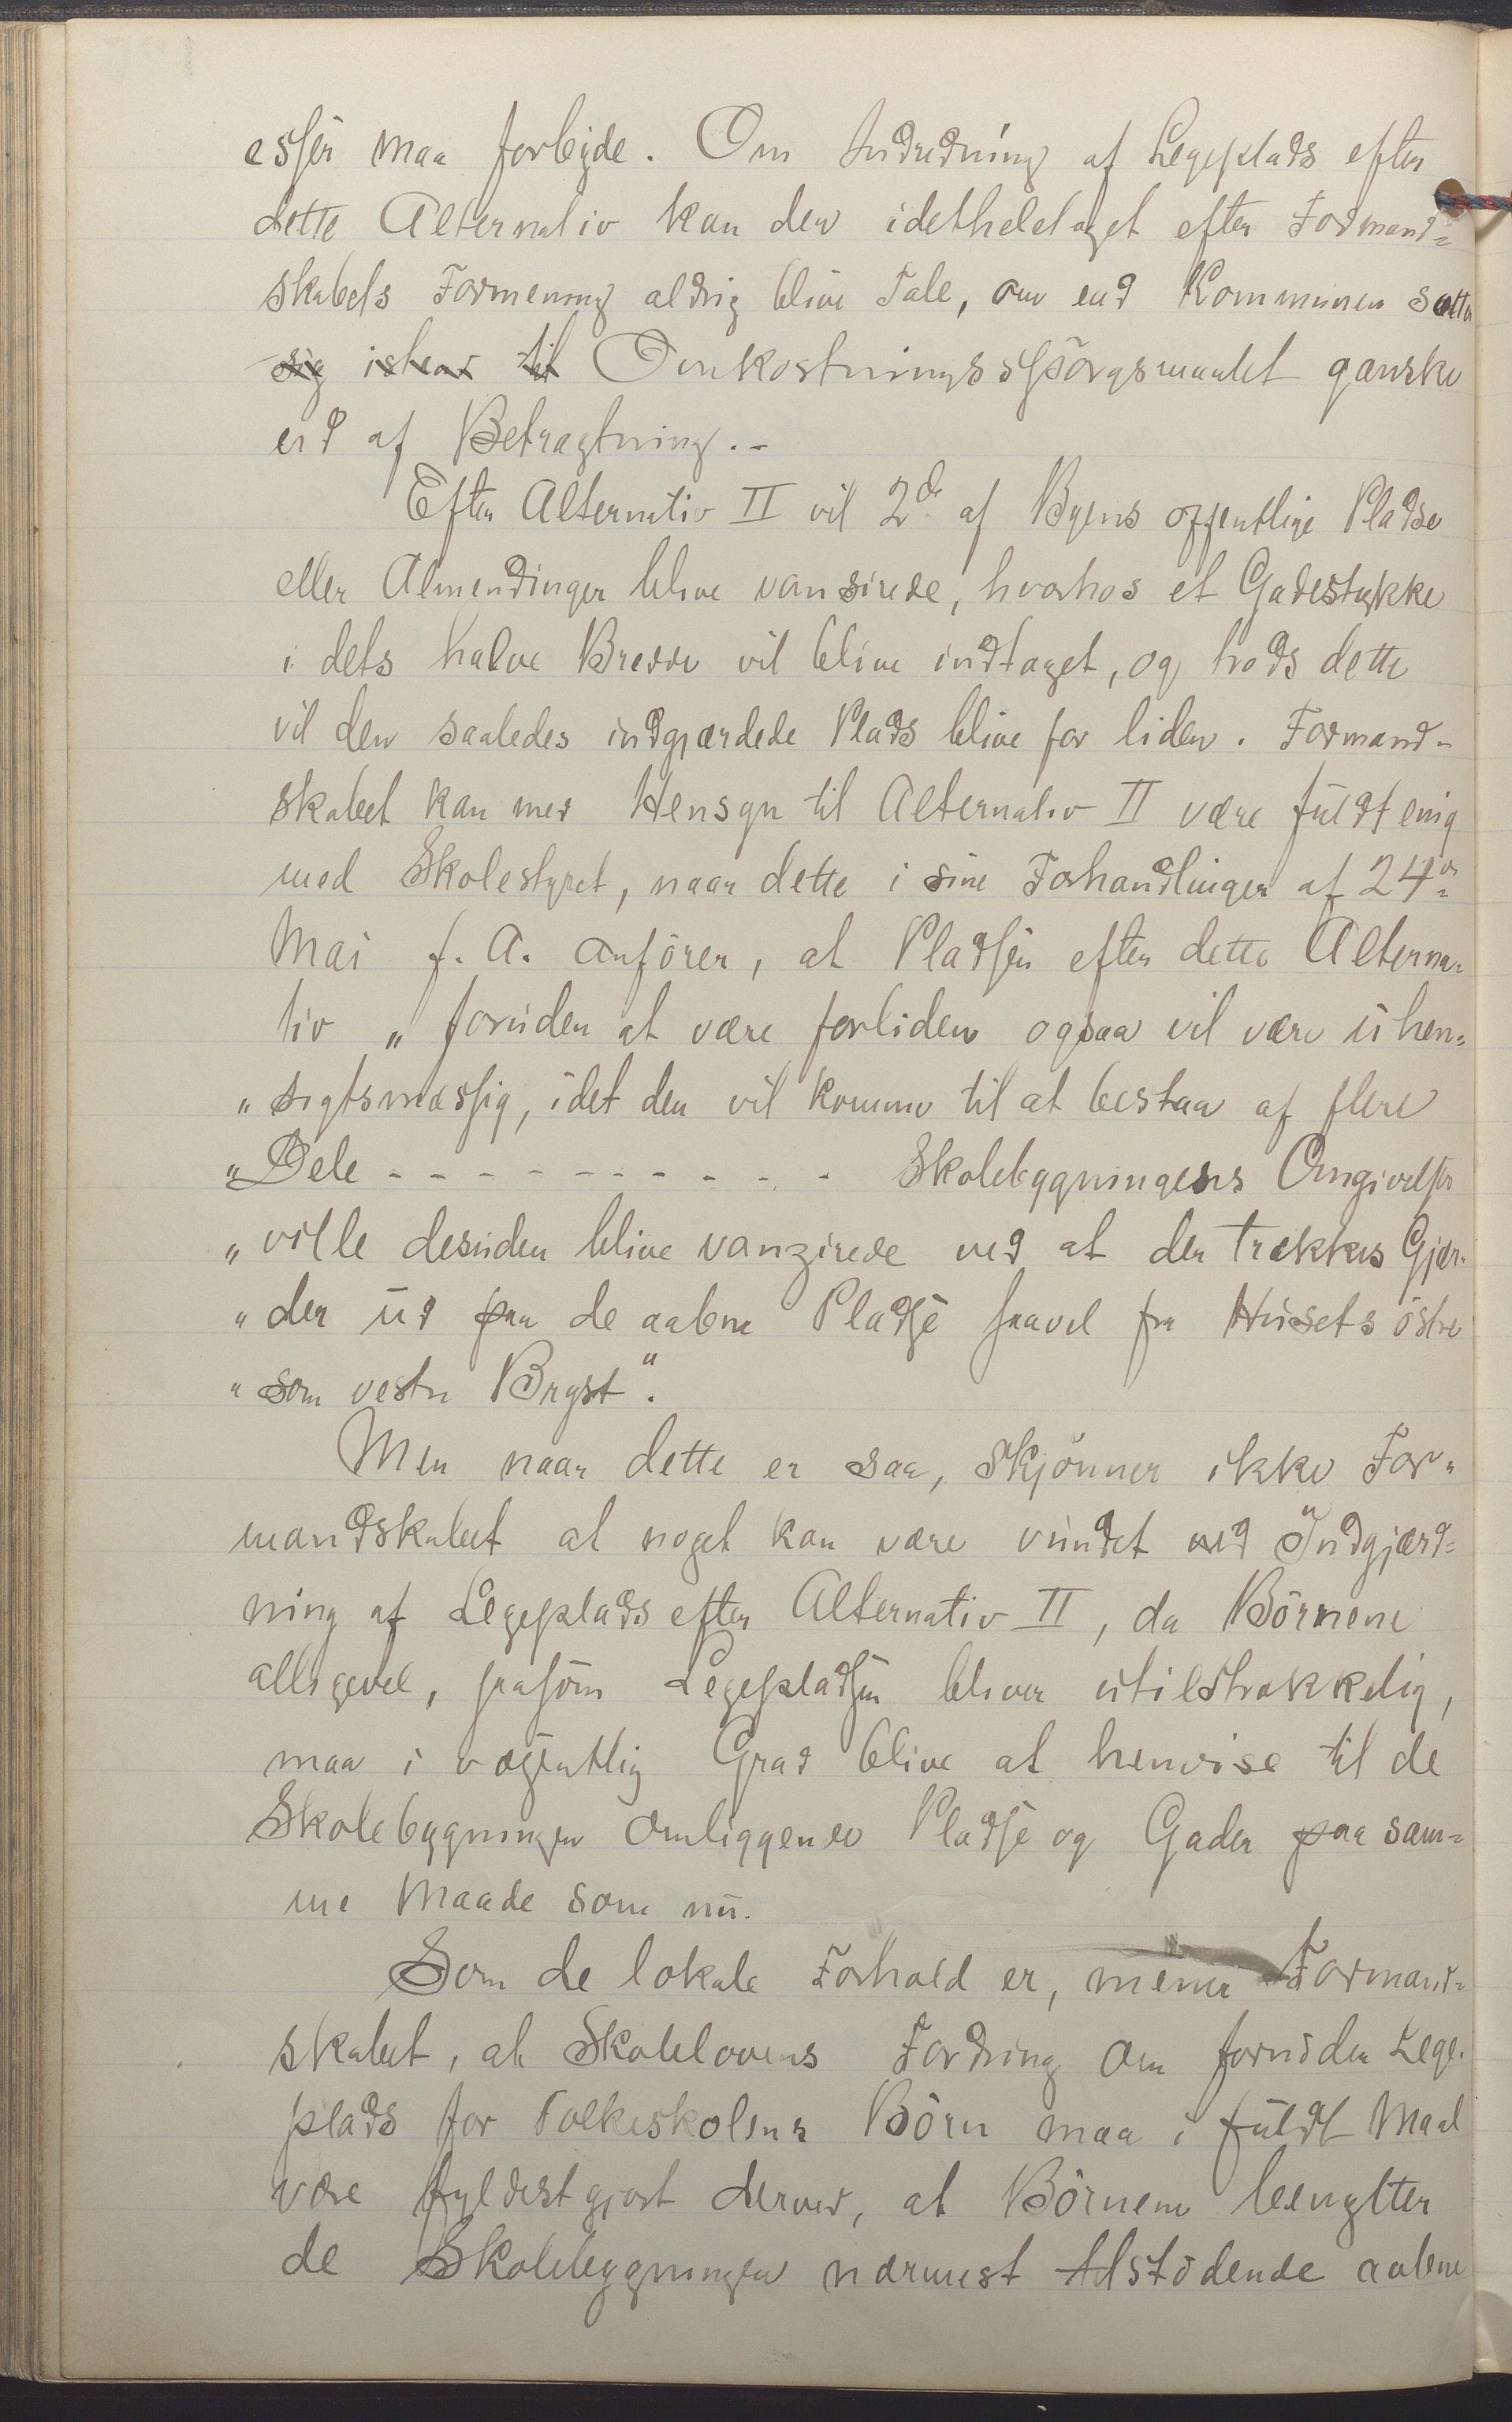 esser maa forbyde. Om Indredning af Legeplads efter
dette Alternativ kan der idetheletaget efter Formand=
skabets Formening aldrig blive Tale, om end Kommunen satte
sig istand til Omkostningsspörgsmaalet ganske
ud af Betragtning.-
Efter Alternativ II vil 2de af Byens offentlige Pladse
eller Almendinger blive vansirede, hvorhos et Gadestykke
i dets halve Bredde vil blive indtaget, og trods dette
vil den saaledes indgjærdede Plads blive for liden. Formand-
skabet kan med Hensyn til Alternativ II være fuldt enig
med Skolestyret, naar dette i sine Forhandlinger af 24de
Mai f. A. anförer, at Pladsen efter dette Alterna-
tiv „foruden at være forliden ogsaa vil være uhen=
„sigtsmæssig, idet den vil komme til at bestaa af flere
„Dele - - - - - - - - - - - Skolebygningens Omgivelser
„ville desuden blive vanzirede ved at der trækkes Gjær-
„der ud paa de aabne Pladse saavel fra Husets östre
„som vestre Bryst".
Men naar dette er saa, skjönner ikke For-
mandskabet at noget kan være vundet ved Indgjærd=
ning af Legeplads efter Alternativ II, da Börnene
alligevel, saasom Legepladsen bliver utilstrækkelig,
maa i væsentlig Grad blive at henvise til de
Skolebygningen omliggende Pladse og Gader paa sam=
me Maade som nu.
Som de lokale Forhold er, mener Formand=
skabet, at Skolelovens Fordring om fornöden Lege-
plads for Folkeskolens Börn maa i fuldt Maal
være fyldestgjort derved, at Börnene benytter
de Skolebygningen nærmest tilstödende aabne